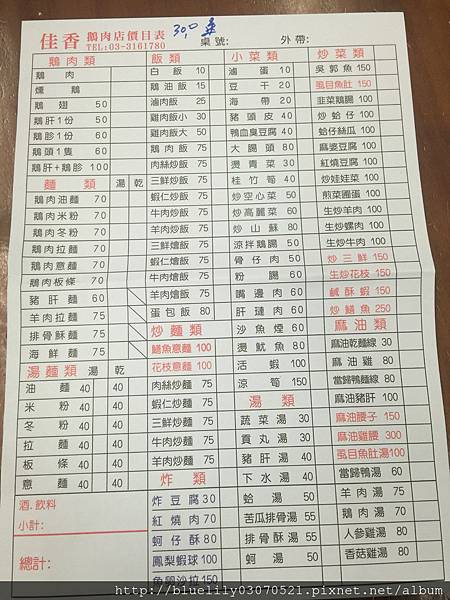 佳香 鵝肉店價目表
TEL:03-3161780
桌號:
外帶:
鵝肉類
鵝肉
燻鵝
鵝翅 50
鵝肝1份 50
鵝胗1份 60
鵝頭1隻 60
鵝肝+鵝胗 100
麵類 湯 乾
鵝肉油麵 70
鵝肉米粉 70
鵝肉冬粉 70
鵝肉拉麵 70
鵝肉意麵 70
鵝肉板條 70
豬肝麵 60
羊肉拉麵 75
排骨酥麵 75
海鮮麵 75
湯麵類 湯 乾
油麵 40 40
米粉 40 40
冬粉 40 40
拉麵 40 40
板條 40 40
意麵 40 40
酒.飲料
小計:
總計:
飯類
白飯 10
鵝油飯 15
滷肉飯 25
雞肉飯小 30
雞肉飯大 50
鵝肉飯 75
肉絲炒飯 75
三鮮炒飯 75
蝦仁炒飯 75
牛肉炒飯 75
羊肉炒飯 75
三鮮燴飯 75
蝦仁燴飯 75
牛肉燴飯 75
羊肉燴飯 75
蛋包飯 80
炒麵類
鱔魚意麵 100
花枝意麵 100
肉絲炒麵 75
蝦仁炒麵 75
三鮮炒麵 75
牛肉炒麵 75
羊肉炒麵 75
炸類
炸豆腐 30
紅燒肉 70
蚵仔酥 80
鳳梨蝦球 100
魚卵沙拉 150
小菜類
滷蛋 10
豆干 20
海帶 20
豬頭皮 40
鴨血臭豆腐 40
大腸頭 80
燙青菜 30
桂竹筍 40
炒空心菜 50
炒高麗菜 60
炒山蘇 80
涼拌鵝腸 50
骨仔肉 50
粉腸 60
嘴邊肉 60
肝連肉 60
沙魚煙 60
燙魷魚 80
活蝦 100
涼筍 150
湯類
蔬菜湯 30
貢丸湯 30
豬肝湯 40
下水湯 40
蛤湯 50
苦瓜排骨湯 55
排骨酥湯 55
蚵湯 50
炒菜類
吳郭魚 150
虱目魚肚 150
韭菜鵝腸 100
炒蛤仔 100
蛤仔絲瓜 100
麻婆豆腐 100
紅燒豆腐 100
炒娃娃菜 100
煎菜圃蛋 100
生炒羊肉 100
生炒螺肉 100
生炒牛肉 100
炒三鮮 150
生炒花枝 150
鹹酥蝦 150
炒鱔魚 250
麻油類
麻油乾麵線 30
麻油雞 80
當歸鴨麵線 80
麻油豬肝 100
麻油腰子 150
麻油雞腰 300
虱目魚肚湯 100
當歸鴨湯 60
羊肉湯 70
鵝肉湯 70
人參雞湯 80
香菇雞湯 80
http://bluelily03070521.pixnet.net/album